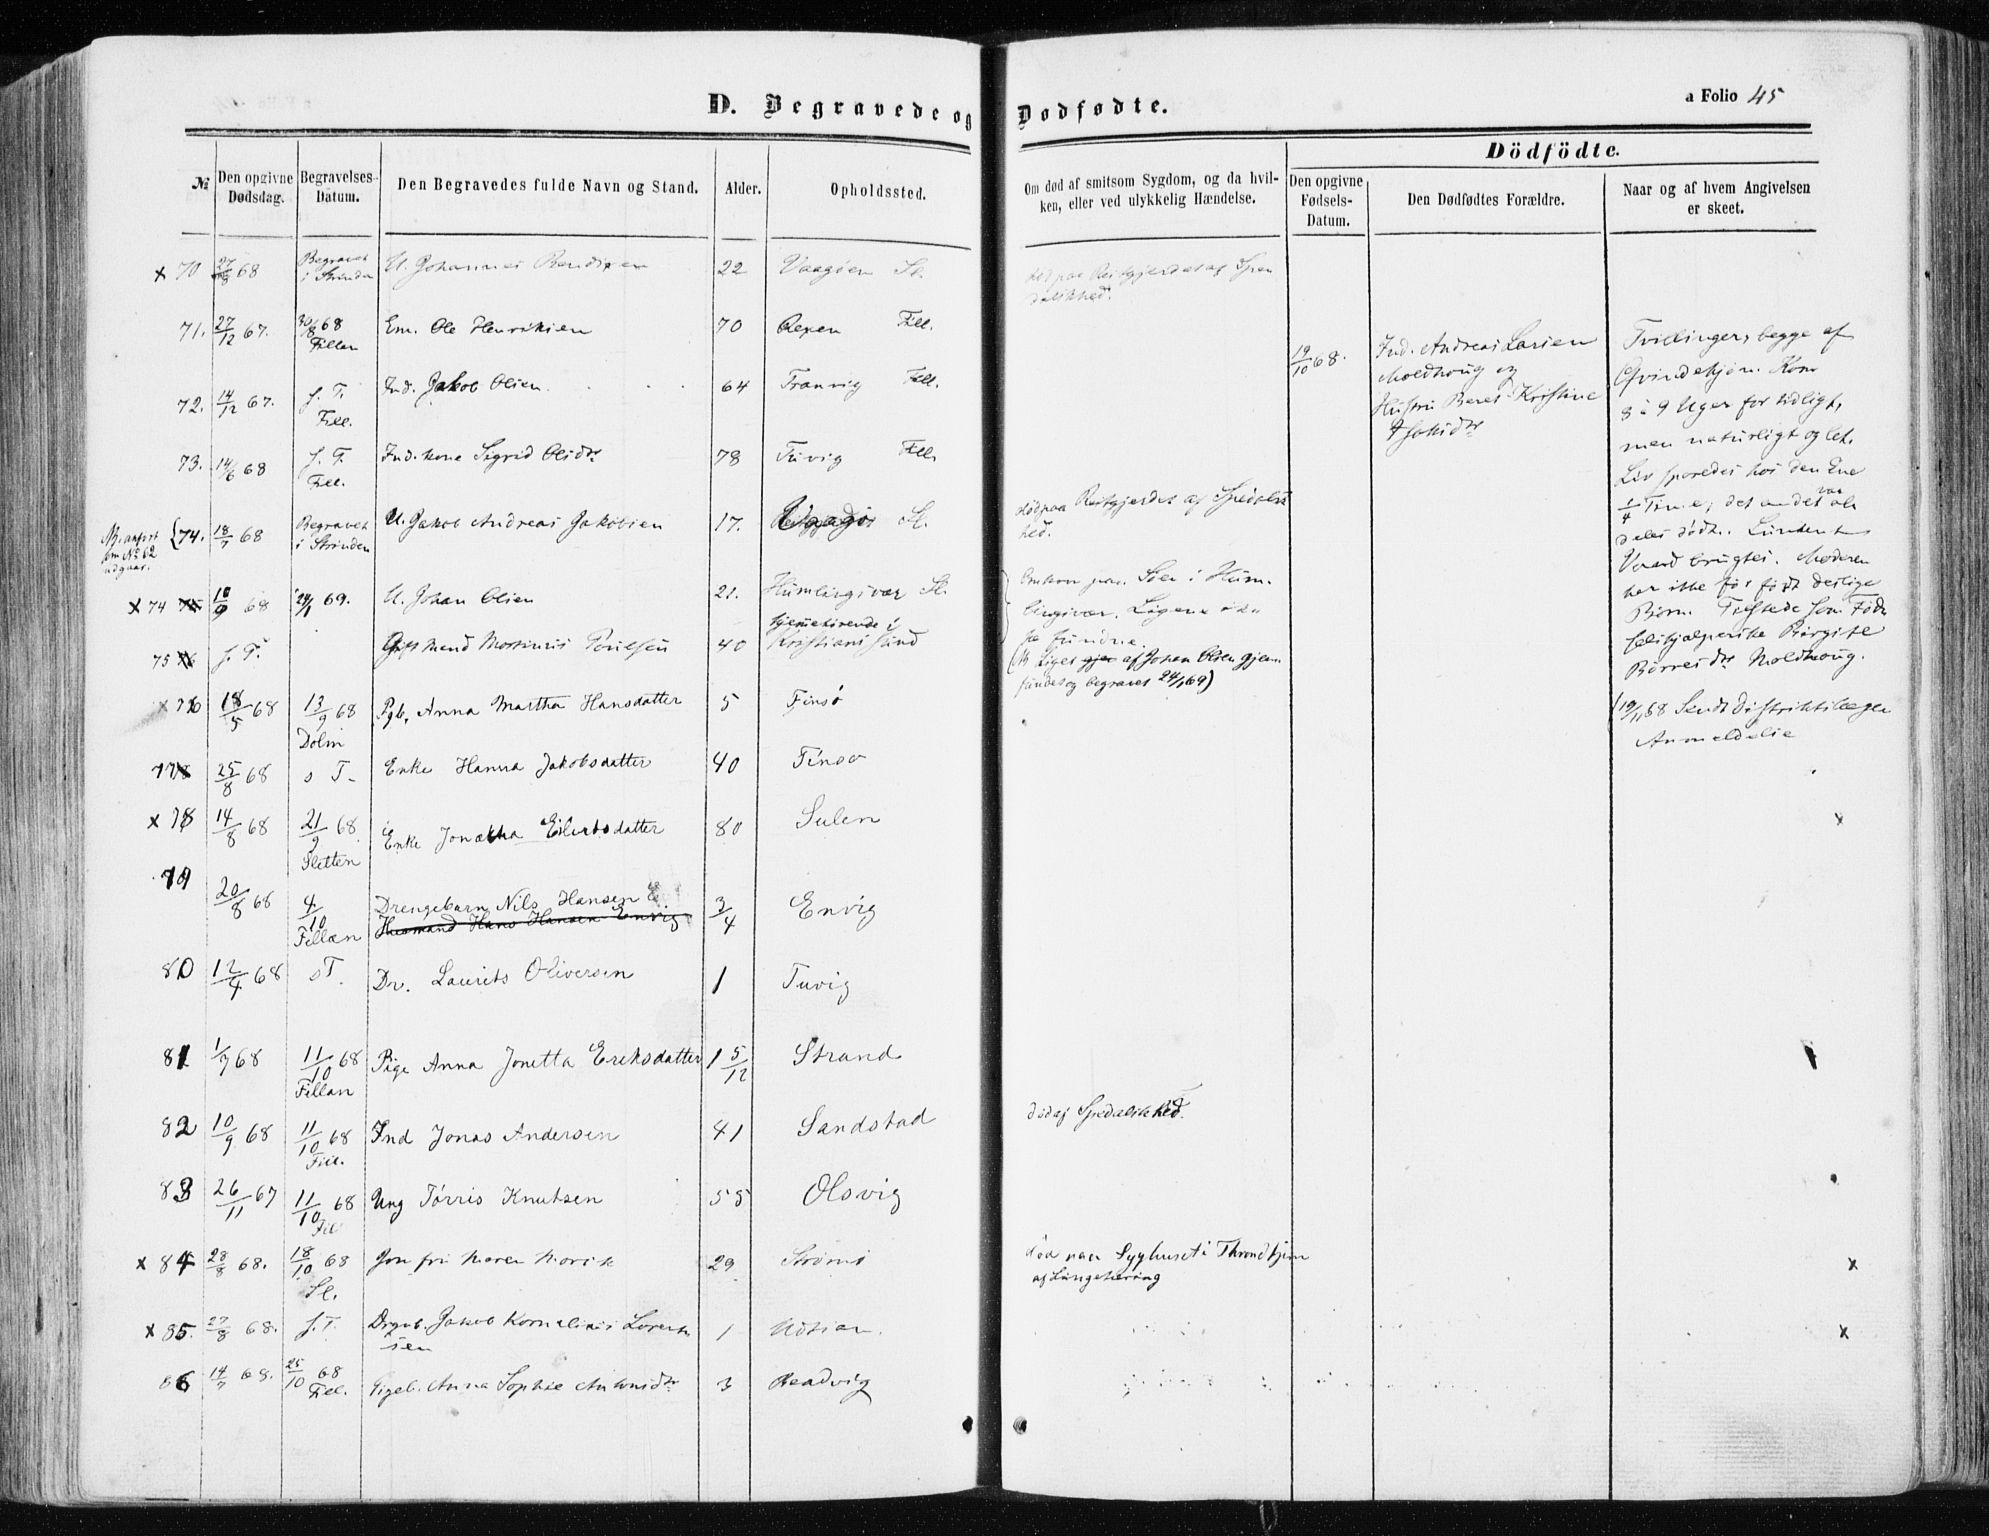 D. Begravede og Dødfødte.
a Folio 45
Dödfödte.
№
Den opgivne Dødsdag.
Begravelses-Datum.
Den Begravedes fulde Navn og Stand.
Alder.
Opholdssted.
Om død af smitsom Sygdom, og da hvil-
ken, eller ved ulykkelig Hændelse.
Den opgivne Fødsels-Datum.
Den Dødfødtes Forældre.
Naar og af hvem Angivelsen
er skeet.
x 70 27/8 68 Begravet i Strinden U. Johannes 22 Vaagøen Sl.
død paa Reitgjerdet af Spedalskhed.
71. 27/12 67. 30/8 68 Fillan Em. Ole Henriksen 70 Fill.
72. 14/12 67. s. T. Fill. Ind. Jakob Olsen 64 Tranvig Fill.
73. 14/6 68 s. T. Fill. Ind. kone Sigrid Olsdtr 78 Tuvig Fill.
NB. anført som No 62 udgaar.
74. 18/7 68 Begravet i Strinden U. Jakob Andreas Jakobsen 17. Sl.
død paa Reitgjerdet af Spedalskhed.
x 74 10/9 68 24/1 69. U. Johan Olsen 21. Humlingsvær Sl.
Omkom paa Søen i Humlingsvær. Ligene ikke
fundne.
75 s. T. Gift Mand Poulsen 40 hjemhørende i Kristiansund
(NB Liget af Johan Olsen gjen-
fundet og begravet 24/1 69)
x 76 18/5 68 13/9 68 Dolm Pgb. Anna Martha Hansdatter 5 Finsø
77 25/8 68 s T. Enke Hanna Jakobsdatter 40 Finsø
x 78 14/8 68 21/9 68 Sletten Enke Jonetha Eilertsdatter 80 Sulen
79 20/8 68 4/10 Fillan Drengebarn Nils Hansen E. 3/4 Envig
Hans Hansen Envig
80 12/4 68 sT. Dr. Laurits Oliversen 1 Tuvig
81 1/7 68 11/10 68 Fillan Pige Anna Jonetta Eriksdatter 1 5/12 Strand
82 10/9 68 11/10 68 Fill. Ind Jonas Andersen 41 Sandstad
død af Spedalskhed.
83 26/11 67 11/10 68 Fil Ung Tørris Knutsen 55 Olsvig
x 84 28/8 68. 18/10 68 Sl. Jomfru Maren 29 Strøm
død paa Syghuset i Throndhjem
af Lungetæring
x 85. 27/8 68. s. T. Drgb. Jakob Kornelius Lorent
sen 1
86 14/7 68. 25/10 68 Fill. Pigeb. Anna Sophie Antonsdtr 3
19/10 68. Ind. Andreas Larsen
Moldhoug og
Hustru Beret Kristine
Tvillinger, begge af
Qvindekjøn. Kom
8 à 9 Uger for tidligt,
men naturligt og let.
Liv sporedes hos den Ene
1/4 Time, det andet var al-
deles dødt.
brugtes. Moderen
har ikke før født deslige
Børn. Tilstede som Føds-
selshjælperske
Moldhoug.
(19/11 68 Sendt Distriktslægen
Anmeldelse